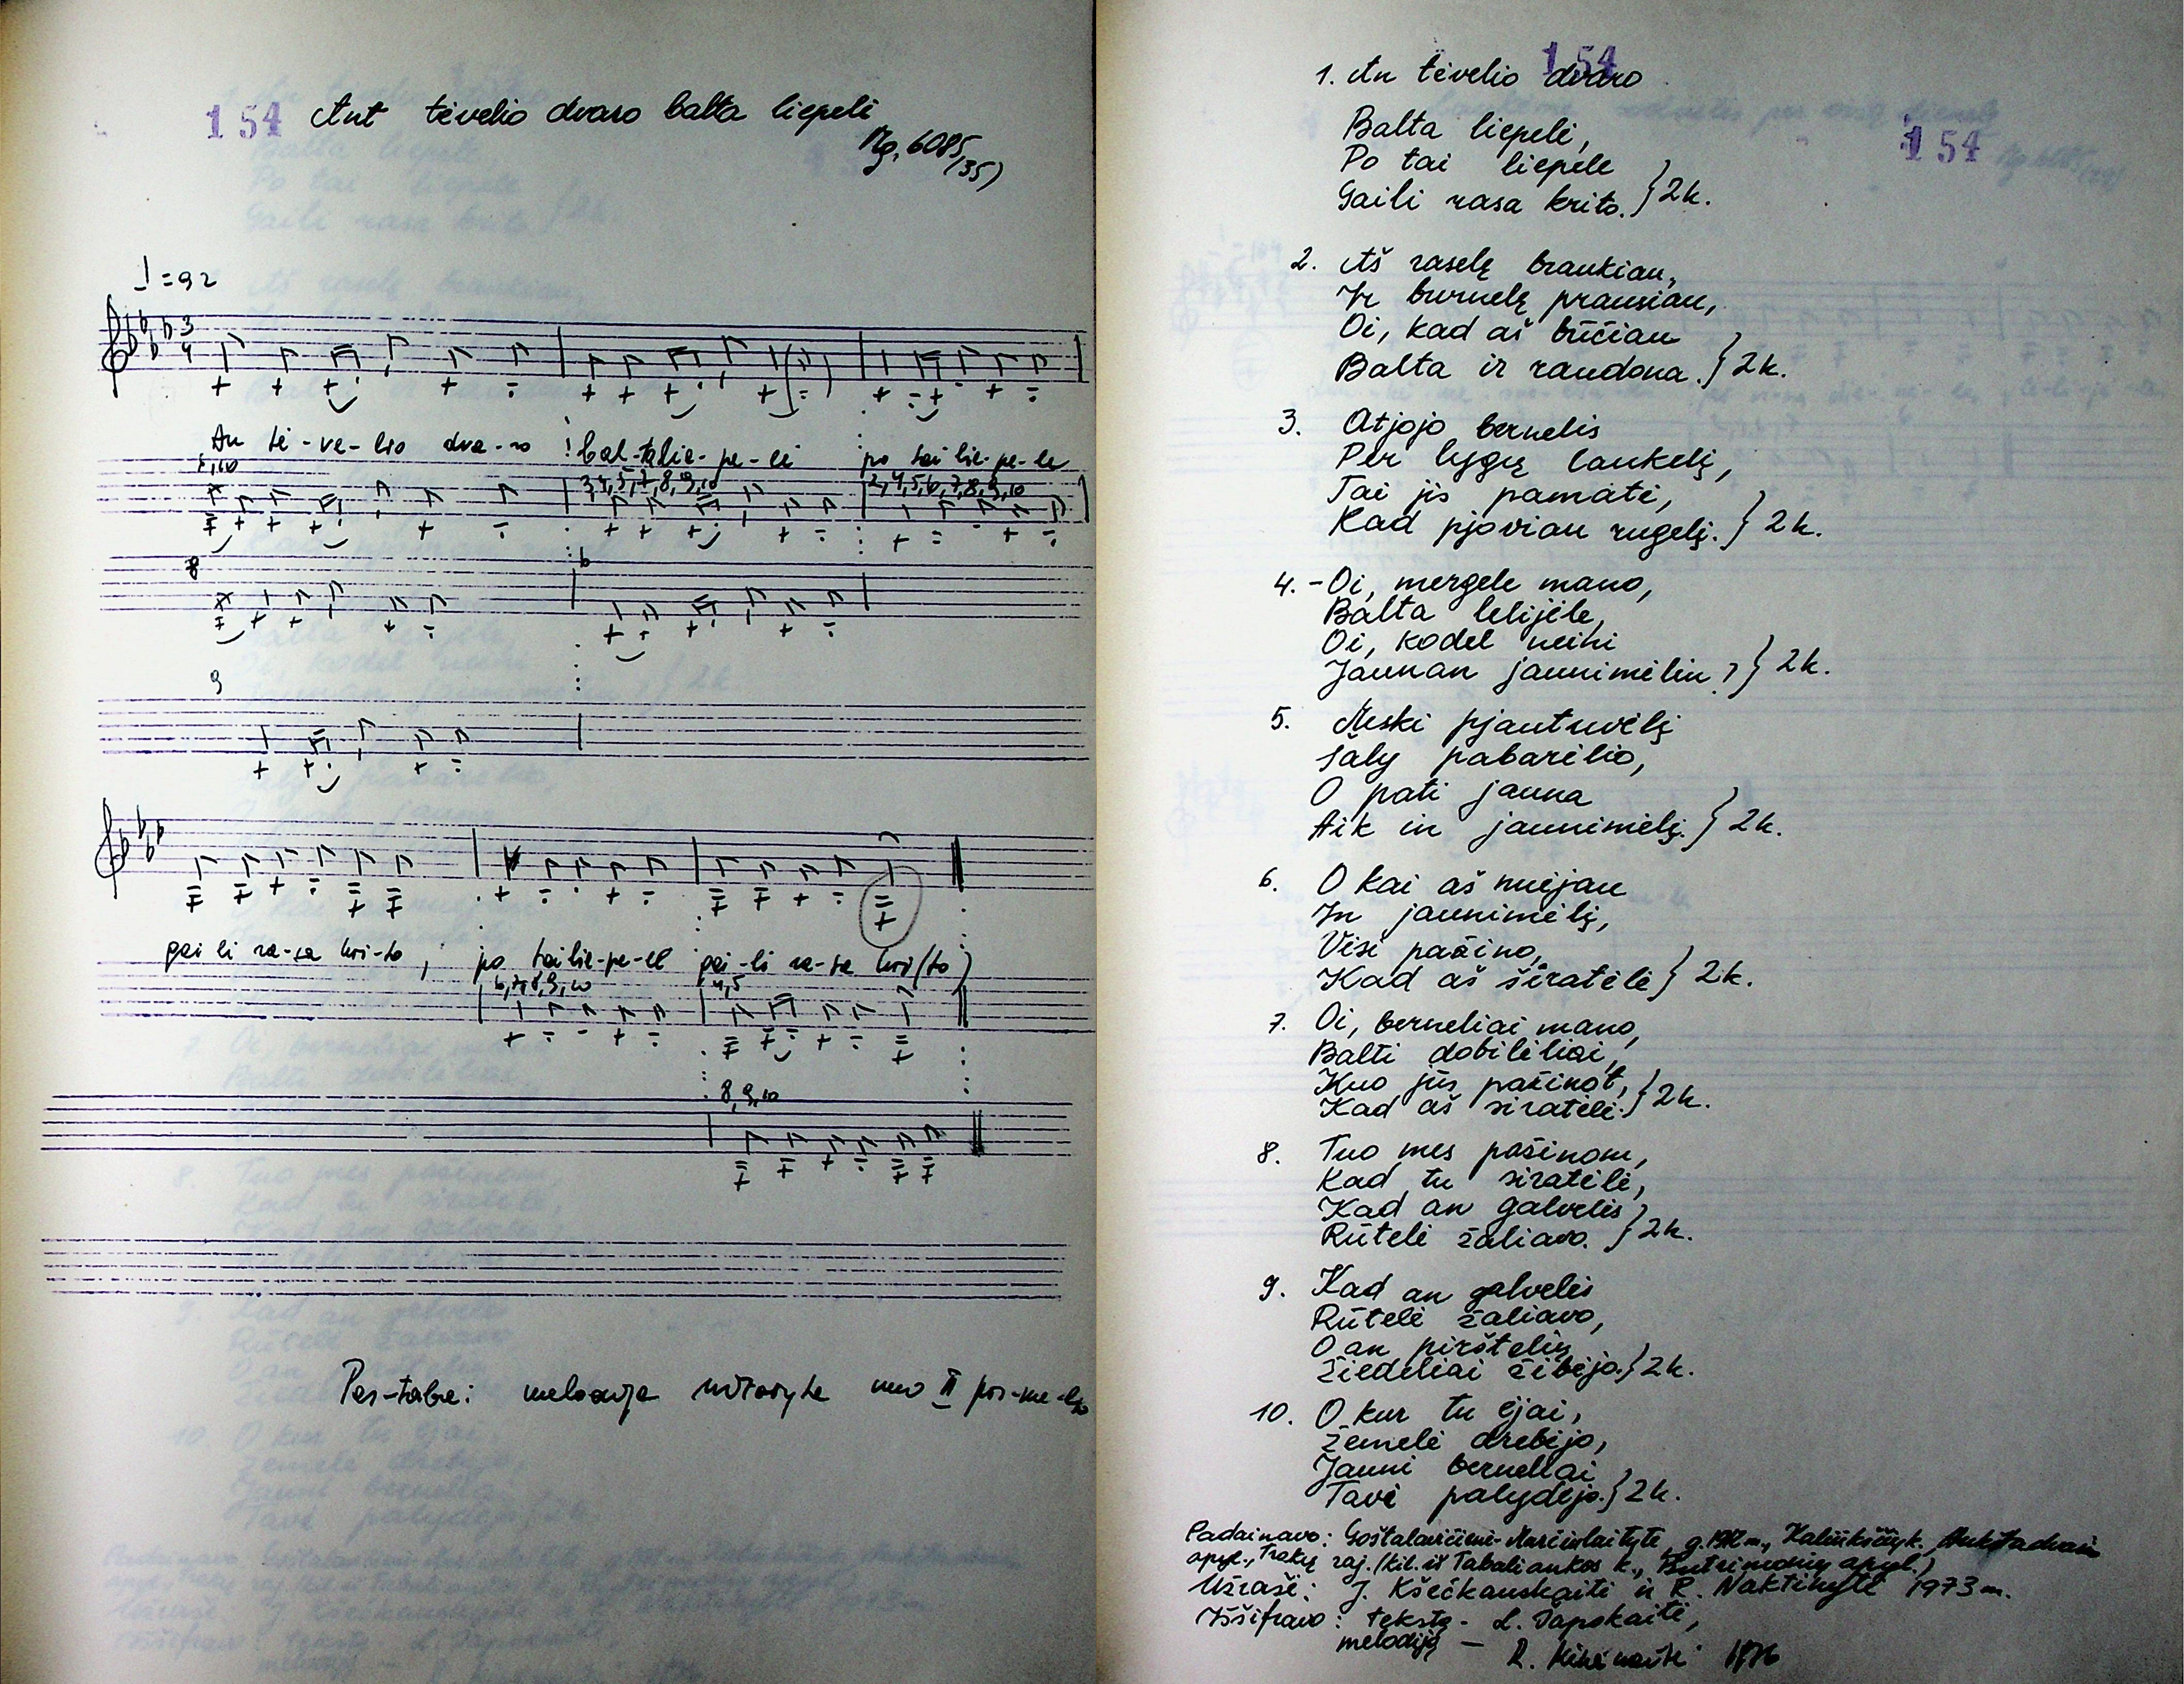 154 Ant tėvelio dvaro balta liepelė
Mg, 6085
(35)
♩=92
3
4
An tė-ve-lio dva-ro balta lie-pe-lė po tai lie-pe-le
3,4,5,7,8,9,10 2,4,5,6,7,8,9,10
8 6
9
gai li ra-sa kri-to, po tai lie-pe-le gai-li ra-sa kri(to)
6,7,8,9,10 4,5
8,9,10
Pastaba: melodija nuo II
154
1. An tėvelio dvaro
154
Balta liepelė,
Po tai liepele
Gaili rasa krito. } 2k.
2. Aš raselę braukian,
Ir burnelę prausian,
Oi, kad aš būčian
Balta ir raudona. } 2k.
3. Atjojo bernelis
Per lygų laukelį,
Tai jis pamatė,
Kad pjovian rugelį. } 2k.
4. - Oi, mergele mano,
Balta lelijėle,
Oi, kodel neini
Jaunan jaunimėlin? } 2k.
5. Meski pjautuvėlį
Šaly pabarėlio,
O pati jauna
Aik in jaunimėlį. } 2k.
6. O kai aš nuėjau
In jaunimėlį,
Visi pažino,
Kad aš siratėlė } 2k.
7. Oi, berneliai mano,
Balti dobilėliai,
Kuo jūs pažinot,
Kad aš siratėlė. } 2k.
8. Tuo mes pažinom,
Kad tu siratėlė,
Kad an galvelės
Rūtelė žaliavo. } 2k.
9. Kad an galvelės
Rūtelė žaliavo,
O an pirštelių
Žiedeliai žibėjo. } 2k.
10. O kur tu ėjai,
Žemelė drebėjo,
Jauni berneliai
Tave palydėjo. } 2k.
Padainavo: g. m.,
apyl., Trakų raj. (kil. iš Tabaliaukos k., Butrimonių apyl.)
Užrašė: J. ir R. Naktinytė 1973 m.
Iššifravo: tekstą - L. Sapokaitė,
melodiją — R. 1976